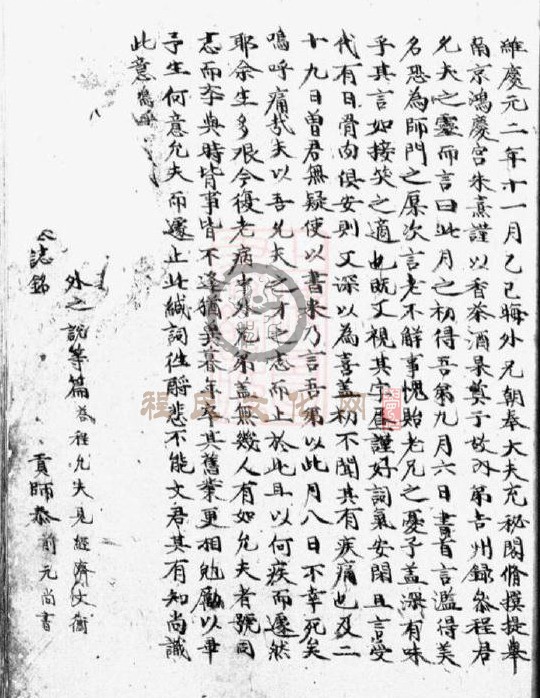 維慶元二年十一月乙巳晦外兄朝奉大夫充秘閣脩撰提舉
南京鴻慶宮朱熹謹以香茶酒果奠于故外弟吉州録參程君
允夫之靈而言曰此月之初得吾弟九月六日書首言濫得美
名恐為師門之辱次言老不解事愧貽老兄之憂予蓋深有味
乎其言如接笑之適也既又視其字畫謹好詞氣安閑且言受
代有日骨肉俱安則又深以為喜蓋初不聞其有疾痛也及二
十九日曾君無疑使以書來乃言吾弟以此月八日不幸死矣
嗚呼痛哉夫以吾允夫之才之志而止於此耶以何疾而遽然
耶余生多艱今復老病中外兄弟蓋無幾人有如允夫者號同
志而卒與時背事皆不逢猶兾暮年卒其舊業更相勉勵以畢
予生何意允夫而遽止此緘詞徃酹悲不能文君其有知尚識
此意嗚呼
外之說等篇答程允夫見經濟文衡
誌銘 貢師泰前元尚書
程氏文化网